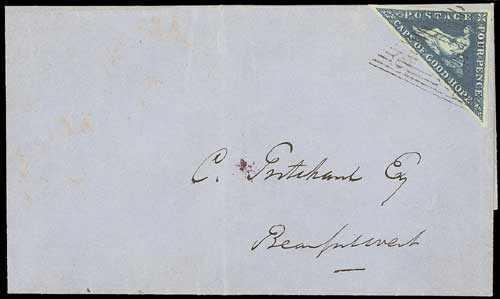 POSTAGE
FOUR PENCE
CAPE OF GOOD HOPE
C. Pritchard Esq
Beaufort West